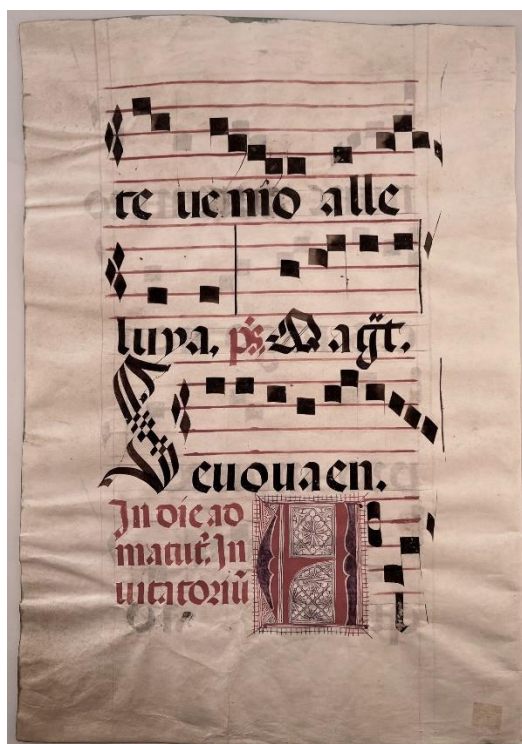 te uenio alle
luya. ps. Magt.
Seuouaen.
In die ad
matut. In
uitatoriū
A